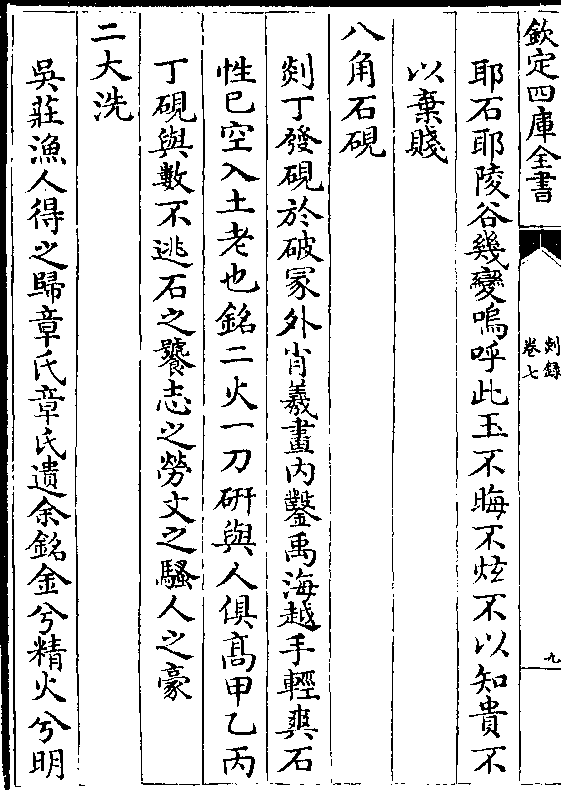 欽定四庫全書
剡錄
卷七
九
耶石耶陵谷幾變嗚呼此玉不晦不炫不以知貴不
以棄賤
八角石硯
剡丁發硯於破冢外肖羲畫内鑿禹海越手輕爽石
性已空入土老也銘二火一刀研與人俱高甲乙丙
丁硯與數不逃石之饕志之勞文之騷人之豪
二大洗
吳莊漁人得之歸章氏章氏遺余銘金兮精火兮明